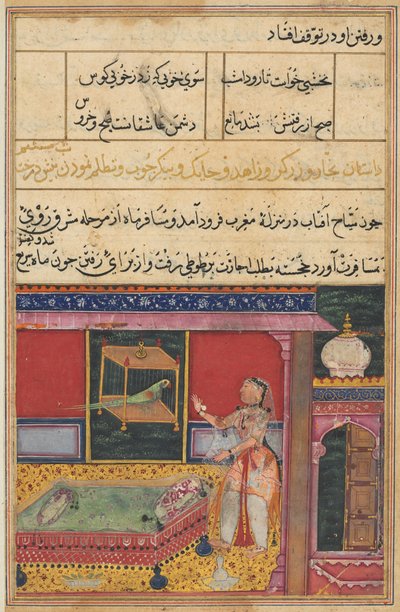 و رفتن او در توقف افتاد
نخشبی خواست تا رود امشب سوی خوبی که زد ز خوبی کوس
صبح از رفتنش بشد مانع دشمن عاشقانست صبح و خروس
داستان نجار و زرگر و زاهد و حایک و پیکر چوب و تظلم نمودن پیش درخت
چون سیاح آفتاب در منزله مغرب فرود آمد و مسافر ماه از مرحله مشرق روی
بمسافرت آورد خجسته بطلب اجازت بر طوطی رفت و از برای رفتن چون ماه سریع